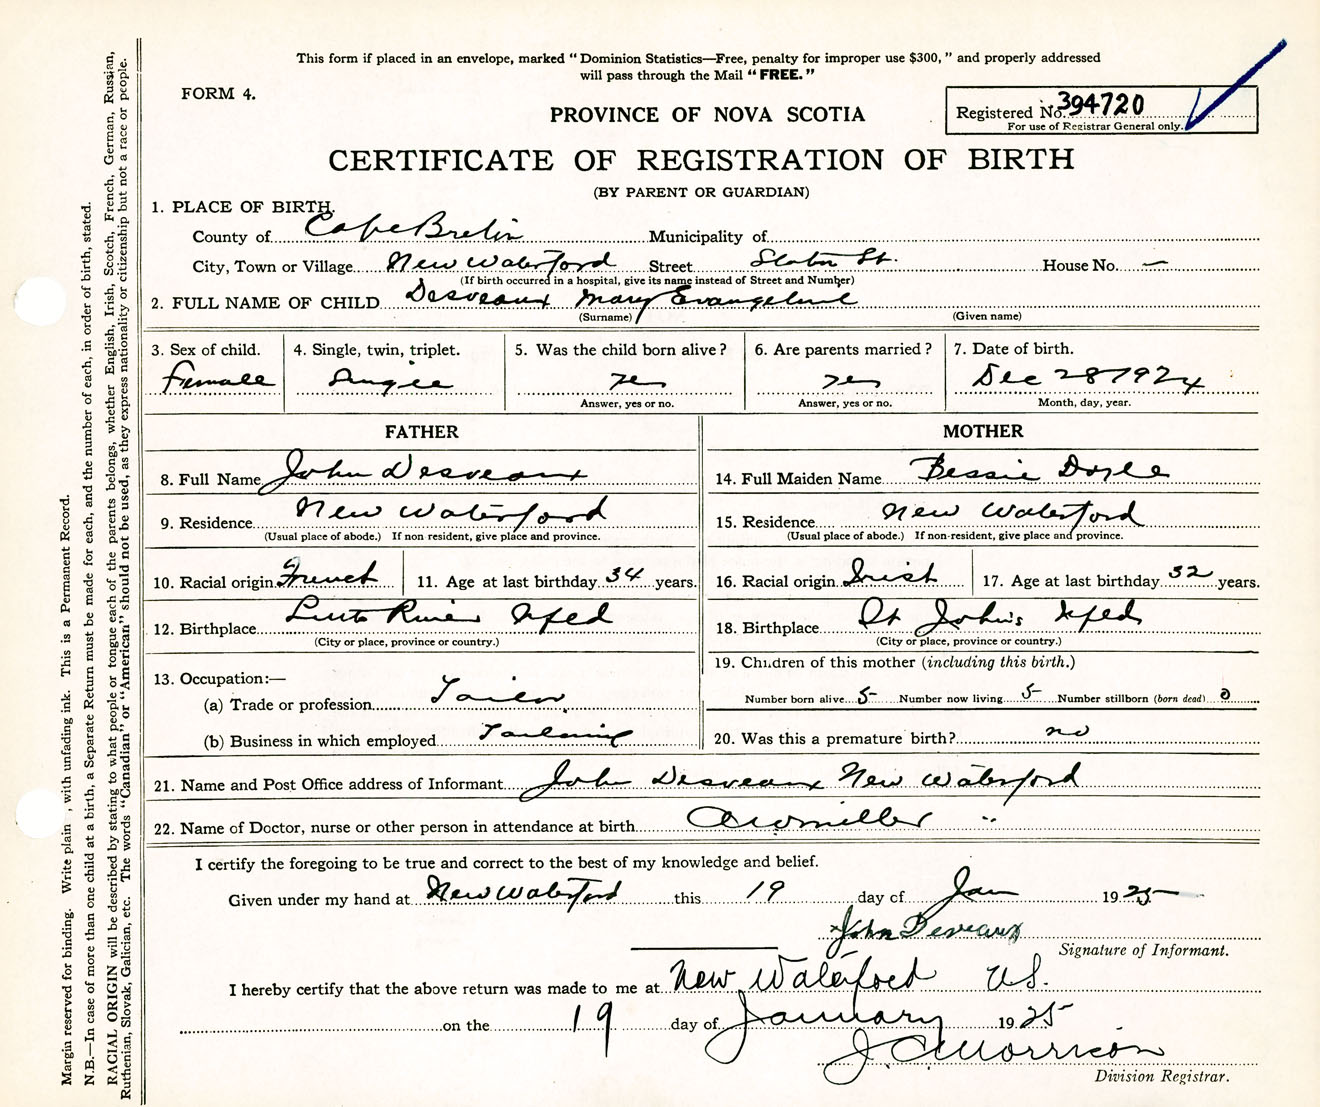 This form if placed in an envelope, marked "Dominion Statistics—Free, penalty for improper use $300," and properly addressed
will pass through the Mail "FREE."
FORM 4.
PROVINCE OF NOVA SCOTIA
Registered No. 394720
For use of Registrar General only.
CERTIFICATE OF REGISTRATION OF BIRTH
(BY PARENT OR GUARDIAN)
1. PLACE OF BIRTH.
County of Cape Breton Municipality of
City, Town or Village New Waterford Street St. House No. —
(If birth occurred in a hospital, give its name instead of Street and Number)
2. FULL NAME OF CHILD Desveaux Mary Evangeline
(Surname) (Given name)
3. Sex of child. 4. Single, twin, triplet. 5. Was the child born alive? 6. Are parents married? 7. Date of birth.
Female Single yes yes Dec 28 1924
Answer, yes or no. Answer, yes or no. Month, day, year.
FATHER MOTHER
8. Full Name John Desveaux 14. Full Maiden Name Bessie Doyle
9. Residence New Waterford 15. Residence New Waterford
(Usual place of abode.) If non resident, give place and province. (Usual place of abode.) If non-resident, give place and province.
10. Racial origin French 11. Age at last birthday 34 years. 16. Racial origin Irish 17. Age at last birthday 32 years.
12. Birthplace River Nfld 18. Birthplace St John's Nfld
(City or place, province or country.) (City or place, province or country.)
13. Occupation:— 19. Children of this mother (including this birth.)
(a) Trade or profession Number born alive 5 Number now living 5 Number stillborn (born dead) 0
(b) Business in which employed Tailoring 20. Was this a premature birth? no
21. Name and Post Office address of Informant John Desveaux New Waterford
22. Name of Doctor, nurse or other person in attendance at birth miller "
I certify the foregoing to be true and correct to the best of my knowledge and belief.
Given under my hand at New Waterford this 19 day of Jan 1925
John Deveaux
Signature of Informant.
I hereby certify that the above return was made to me at New Waterford
on the 19 day of January 1925
J. C. Morrison
Division Registrar.
Margin reserved for binding. Write plain , with unfading ink. This is a Permanent Record.
N.B.—In case of more than one child at a birth, a Separate Return must be made for each, and the number of each, in order of birth, stated.
RACIAL ORIGIN will be described by stating to what people or tongue each of the parents belongs, whether English, Irish, Scotch, French, German, Russian,
Ruthenian, Slovak, Galician, etc. The words "Canadian" or "American" should not be used, as they express nationality or citizenship but not a race or people.